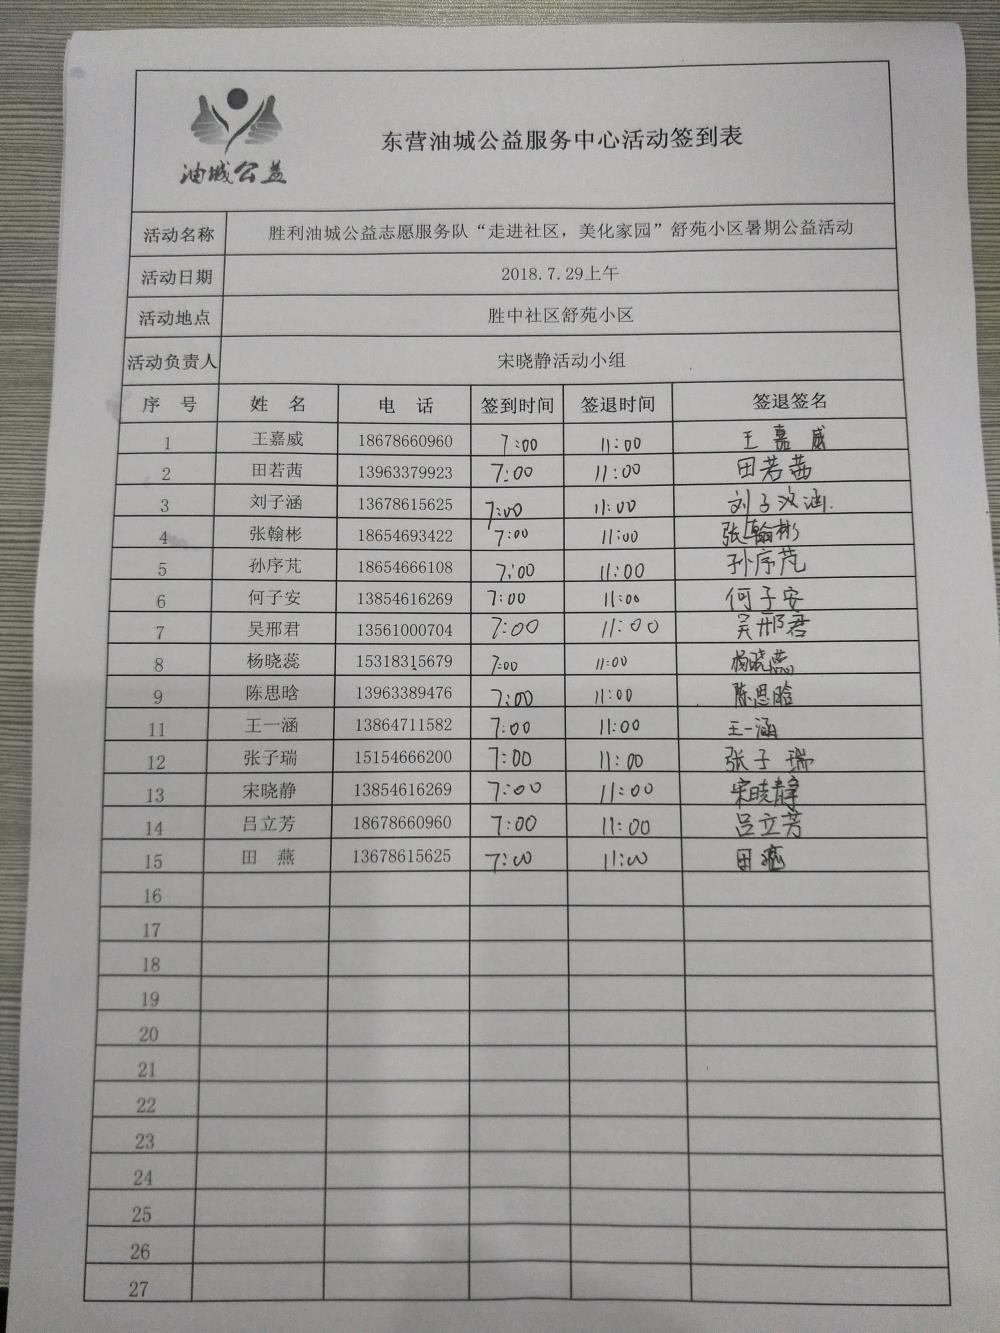 油城公益
东营油城公益服务中心活动签到表
活动名称 胜利油城公益志愿服务队“走进社区，美化家园”舒苑小区暑期公益活动
活动日期 2018.7.29上午
活动地点 胜中社区舒苑小区
活动负责人 宋晓静活动小组
序 号 姓 名 电 话 签到时间 签退时间 签退签名
1 王嘉威 18678660960 7:00 11:00 王嘉威
2 田若茜 13963379923 7:00 11:00 田若茜
3 刘子涵 13678615625 7:00 11:00 刘子涵
4 张翰彬 18654693422 7:00 11:00 张翰彬
5 孙序芃 18654666108 7:00 11:00 孙序芃
6 何子安 13854616269 7:00 11:00 何子安
7 吴邢君 13561000704 7:00 11:00 吴邢君
8 杨晓蕊 15318315679 7:00 11:00 杨晓蕊
9 陈思晗 13963389476 7:00 11:00 陈思晗
11 王一涵 13864711582 7:00 11:00 王一涵
12 张子瑞 15154666200 7:00 11:00 张子瑞
13 宋晓静 13854616269 7:00 11:00 宋晓静
14 吕立芳 18678660960 7:00 11:00 吕立芳
15 田 燕 13678615625 7:00 11:00 田燕
16
17
18
19
20
21
22
23
24
25
26
27